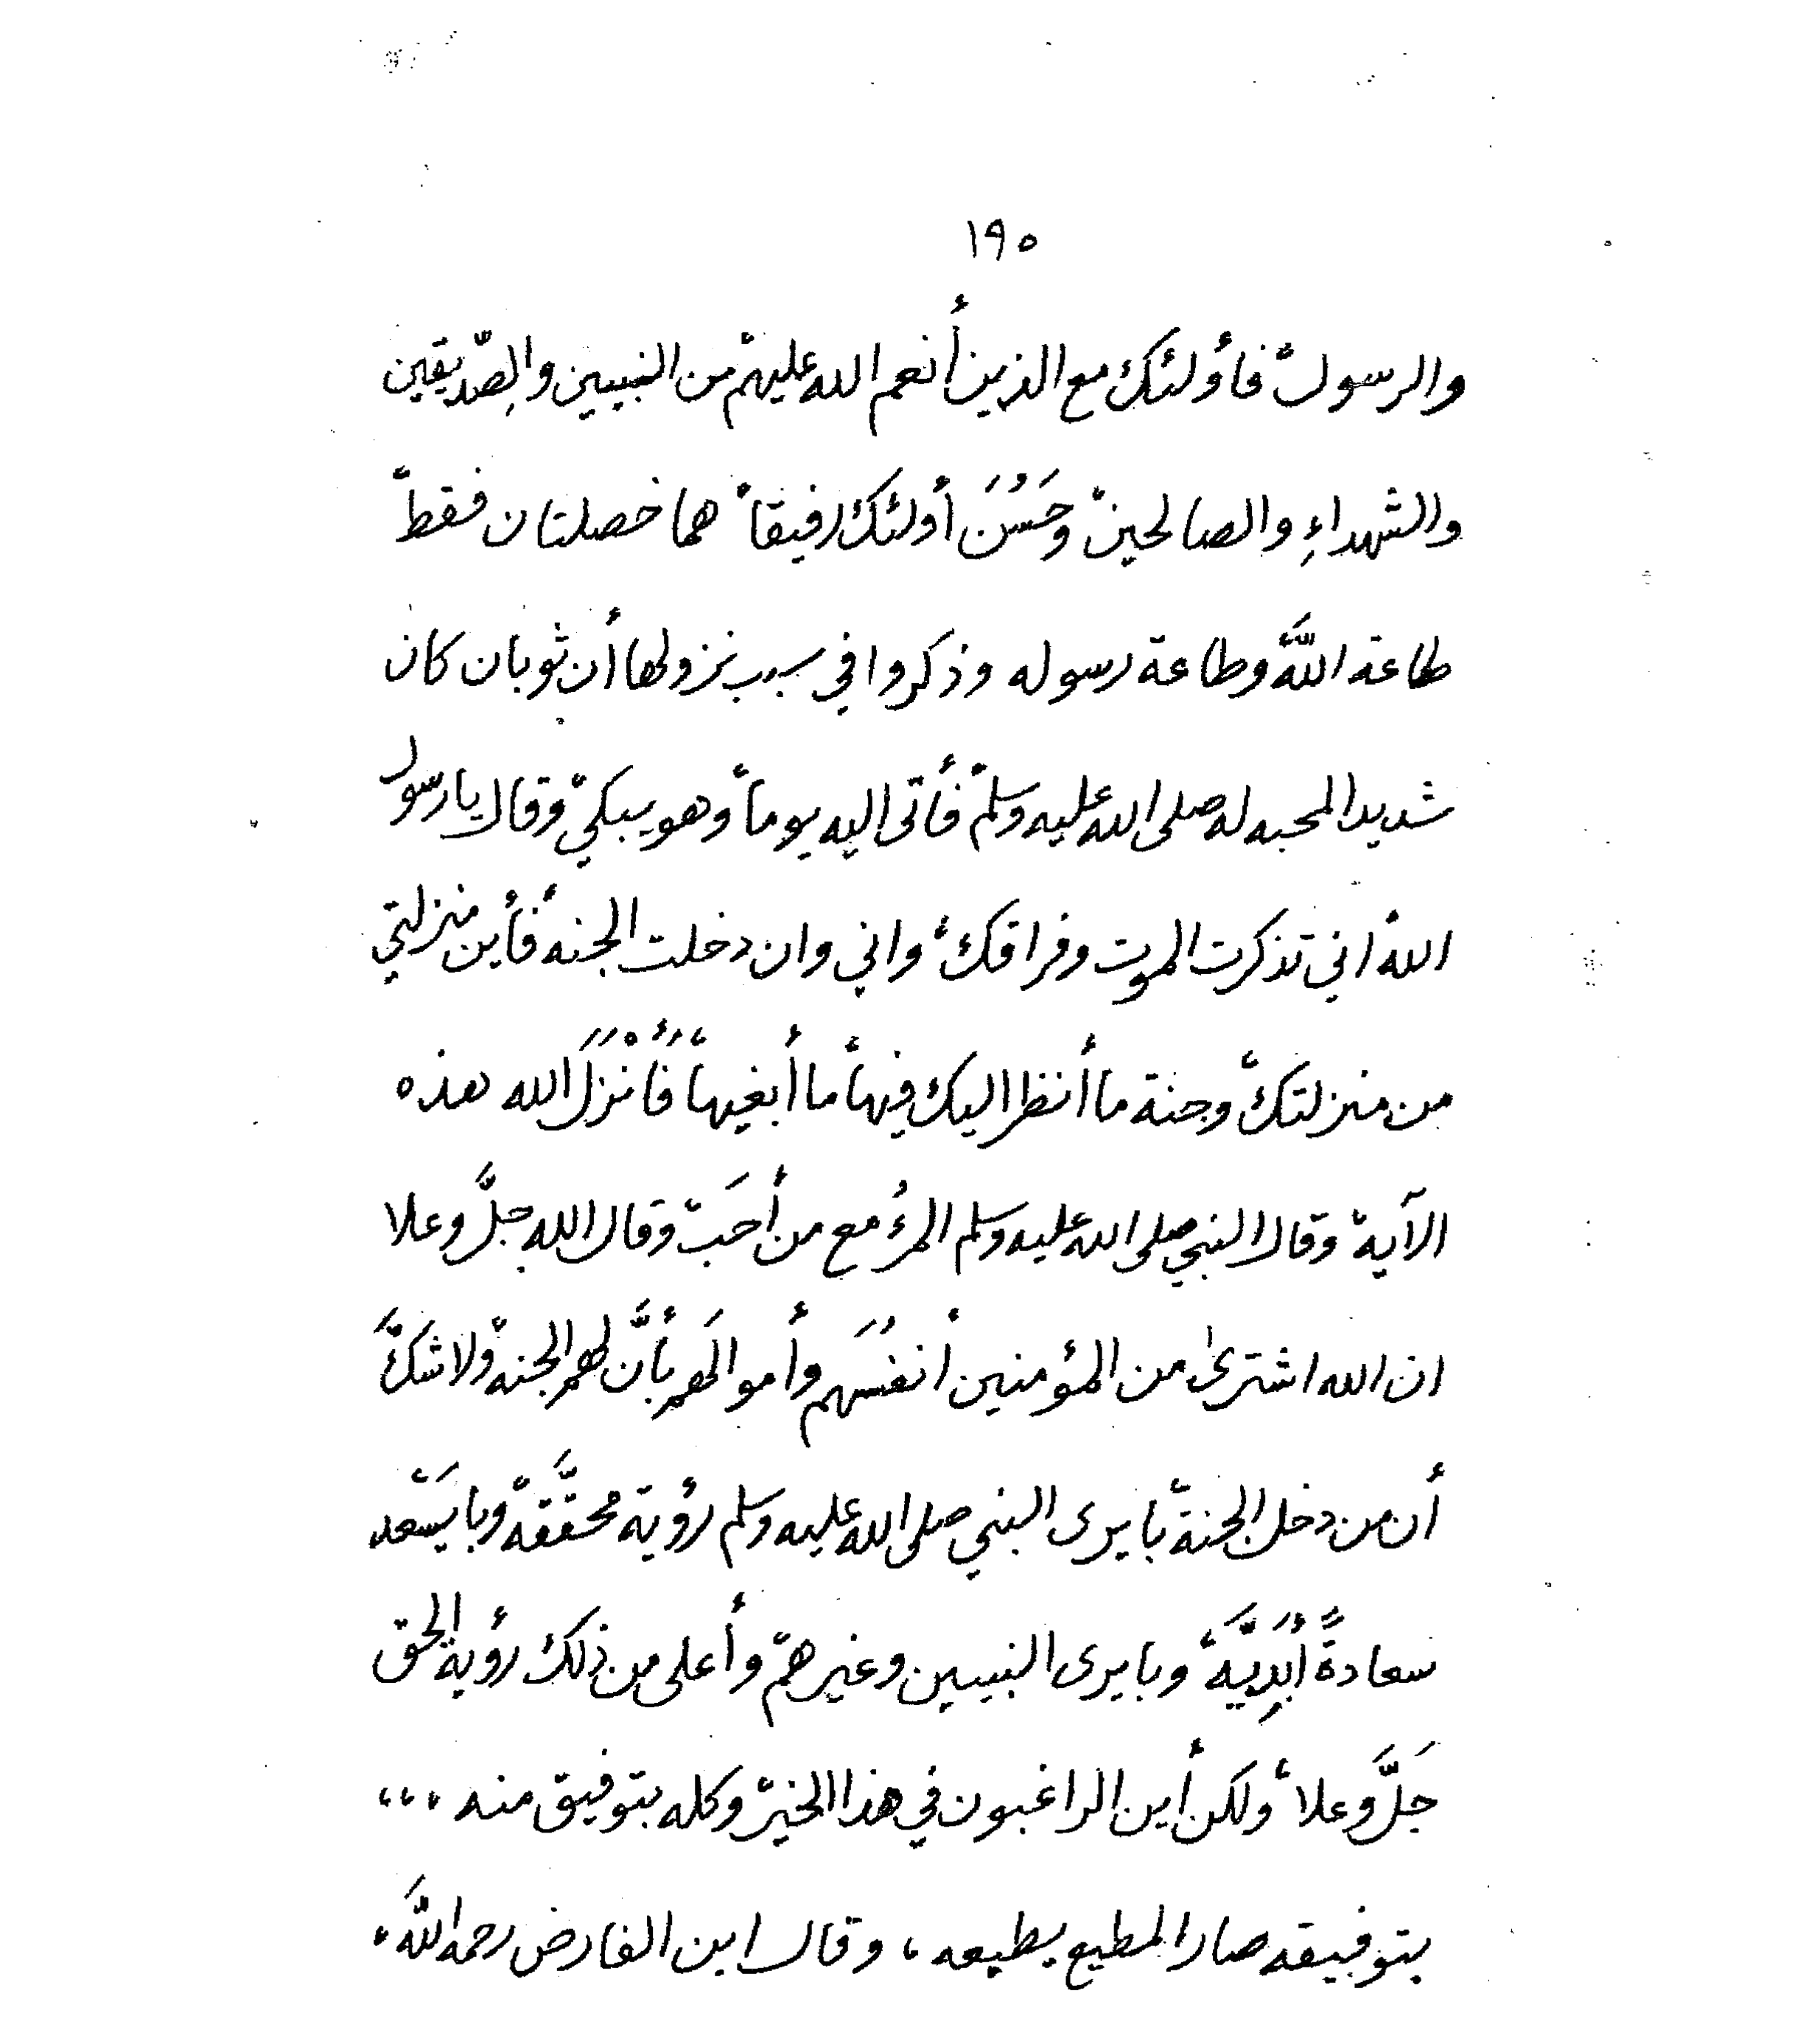 ١٩٥
والرسول، فأولئك مع الذين أنعم الله عليهم من النبيين والصِدّيقين
والشهداءِ والصالحين، وحَسُنَ أولئك رفيقاً، هما خصلتان فقط،
طاعة اللَّه، وطاعة رسوله وذكروا في سبب نزولها أن ثوبان كان
شديد المحبه له صلى الله عليه وسلم، فأتى اليه يوماً وهو يبكي، وقال يا رسول
الله، اني تذكرت الموت وفراقك، واني وان دخلت الجنه، فأين منزلتي
من منزلتك، وجنة ما أنظر اليك فيها، ما أبغيها، فَأَنْزَلَ الله هذه
الآية، وقال النبي صلى الله عليه وسلم المرءُ مع من أحَب، وقال الله جلَّ وعلا
ان الله اشترىٰ من المؤمنين أنفُسَهم وأموالَهم بأَنَّ لهم الجنه، ولا شَكَّ
أن من دخل الجنة، با يرى النبي صلى الله عليه وسلم رؤية محقَّقه، وبا يَسْعد
سعادةً أَبَدِيَّه، وبا يرى النبيين وغيرهم، وأعلى من ذلك رؤية الحق
جَلَّ وعلا، ولكن أين الراغبون في هذا الخير، وكله بتوفيق منه ،،،
بتوفيقه صار المطيع يطيعه ، وقال ابن الفارض رحمه اللَّه،